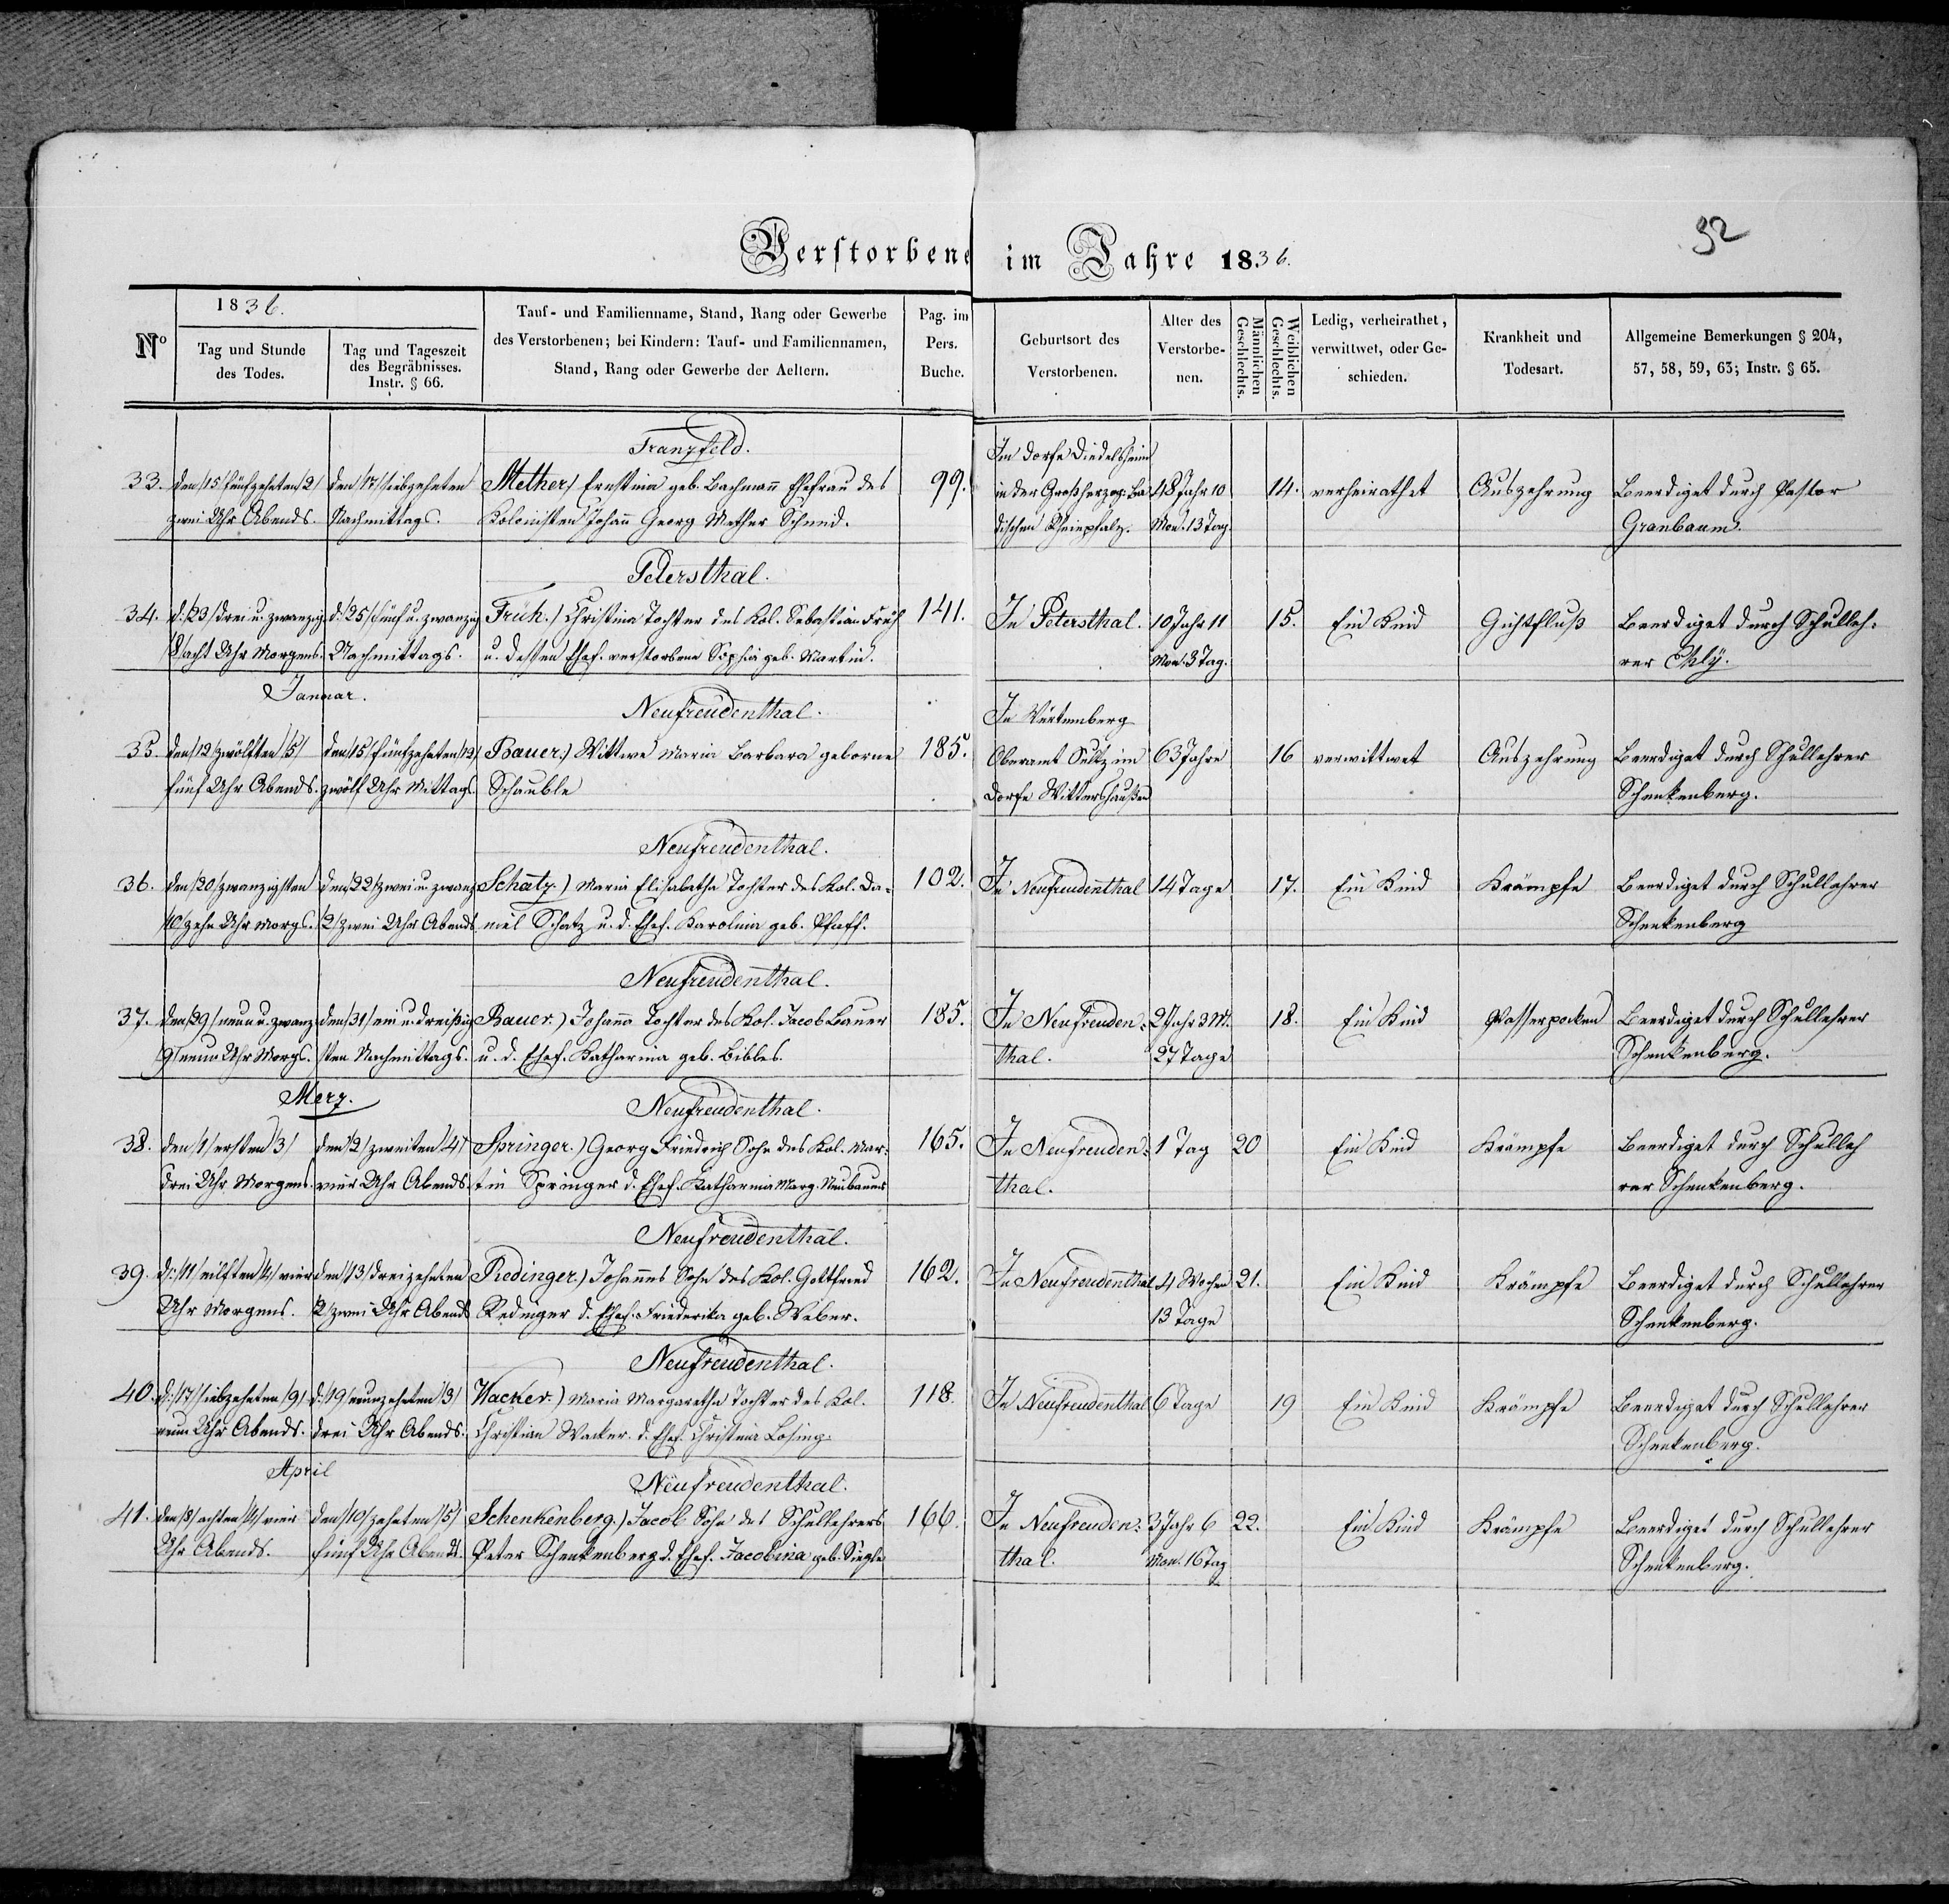 Verstorbene im Jahre 1836.
92
No
1836.
Tag und Stunde
des Todes.
Tag und Tageszeit
des Begräbnisses.
Instr. § 66.
Tauf- und Familienname, Stand, Rang oder Gewerbe
des Verstorbenen; bei Kindern: Tauf- und Familiennamen,
Stand, Rang oder Gewerbe der Aeltern.
Pag. im
Pers.
Buche.
Geburtsort des
Verstorbenen.
Alter des
Verstorbe-
nen.
Männlichen
Geschlechts.
Weiblichen
Geschlechts.
Ledig, verheirathet,
verwittwet, oder Ge-
schieden.
Krankheit und
Todesart.
Allgemeine Bemerkungen § 204,
57, 58, 59, 63; Instr. § 65.
Franzfeld.
Im Dorfe Diedelsheim
33. den /15/ fünfzehnten /2/ den /17/ siebzehnten Mether / Ernstina geb. Bachmann Ehefrau des 99. in der Großherzog. Ba- 48 Jahr 10 14. verheirathet Auszehrung Beerdiget durch Pastor
zwei Uhr Abends. Nachmittags. Kolonisten Johann Georg Mether Schmid. dischen Rheinpfalz. Mon. 13 Tag. Granbaum.
Petersthal.
34. d. /23/ drei u. zwanzig d. /25/ fünf u. zwanzig Früh.) Christina Tochter des Kol. Sebastian Früh 141. In Petersthal. 10 Jahr 11 15. Ein Kind Gichtfluß Beerdiget durch Schulleh-
/8/ acht Uhr Morgens. Nachmittags. u. dessen Ehef. verstorbene Sophia geb. Martin. Mon. 3 Tag. rer Ehly.
Januar.
Neufreudenthal. In Würtemberg
35. den /12/ zwölften /5/ den /15/ fünfzehnten /12/ Bauer.) Wittwe Maria Barbara geborne 185. Oberamt Sultz im 63 Jahre 16 verwittwet Auszehrung Beerdiget durch Schullehrer
fünf Uhr Abends. zwölf Uhr Mittags. Schäuble Dorfe Wittershaußen Schenkenberg.
Neufreudenthal.
36. den /20/ zwanzigsten den /22/ zwei u. zwanz Schatz.) Maria Elisabetha Tochter des Kol. Da- 102. In Neufreudenthal 14 Tage 17. Ein Kind Krämpfe Beerdiget durch Schullehrer
/10/ zehn Uhr Morgs. /2/ zwei Uhr Abends niel Schatz u. d. Ehef. Karolina geb. Pfaff. Schenkenberg
Neufreudenthal.
37. den /29/ neun u. zwanz den /31/ ein u. dreißig Bauer.) Johanna Tochter des Kol. Jacob Bauer 185. In Neufreuden- 2 Jahr 3 M. 18. Ein Kind Wasserpocken Beerdiget durch Schullehrer
/9/ neun Uhr Morgs. sten Nachmittags. u. d. Ehef. Katharina geb. Bibles. thal. 27 Tage Schenkenberg.
Merz.
Neufreudenthal.
38. den /1/ ersten /3/ den /2/ zweiten /4/ Springer.) Georg Friedrich Sohn des Kol. Mar- 165. In Neufreuden- 1 Tag 20 Ein Kind Krämpfe Beerdiget durch Schulleh
drei Uhr Morgens. vier Uhr Abends. tin Springer d. Ehef. Katharina Marg. Neubauer thal. rer Schenkenberg.
Neufreudenthal.
39. d. /11/ eilften /4/ vier den /13/ dreizehnten Redinger.) Johannes Sohn des Kol. Gottfried 162. In Neufreudenthal 4 Wochen 21. Ein Kind Krämpfe Beerdiget durch Schullehrer
Uhr Morgens. /2/ zwei Uhr Abends Redinger d. Ehef. Friederika geb. Weber. 13 Tage Schenkenberg.
Neufreudenthal.
40. d. /17/ siebzehnten /9/ d. /19/ neunzehnten /3/ Wacker.) Maria Margaretha Tochter des Kol. 118. In Neufreudenthal 6 Tage 19 Ein Kind Krämpfe Beerdiget durch Schullehrer
neun Uhr Abends. drei Uhr Abends. Christian Wacker. d. Ehef. Christina Losing. Schenkenberg.
April
Neufreudenthal.
41. den /8/ achten /4/ vier den /10/ zehnten /5/ Schenkenberg.) Jacob Sohn des Schullehrers 166. In Neufreuden- 3 Jahr 6 22. Ein Kind Krämpfe Beerdiget durch Schullehrer
Uhr Abends. fünf Uhr Abends. Peter Schenkenberg d. Ehef. Jacobina geb. Siegle thal. Mon. 16 Tag Schenkenberg.